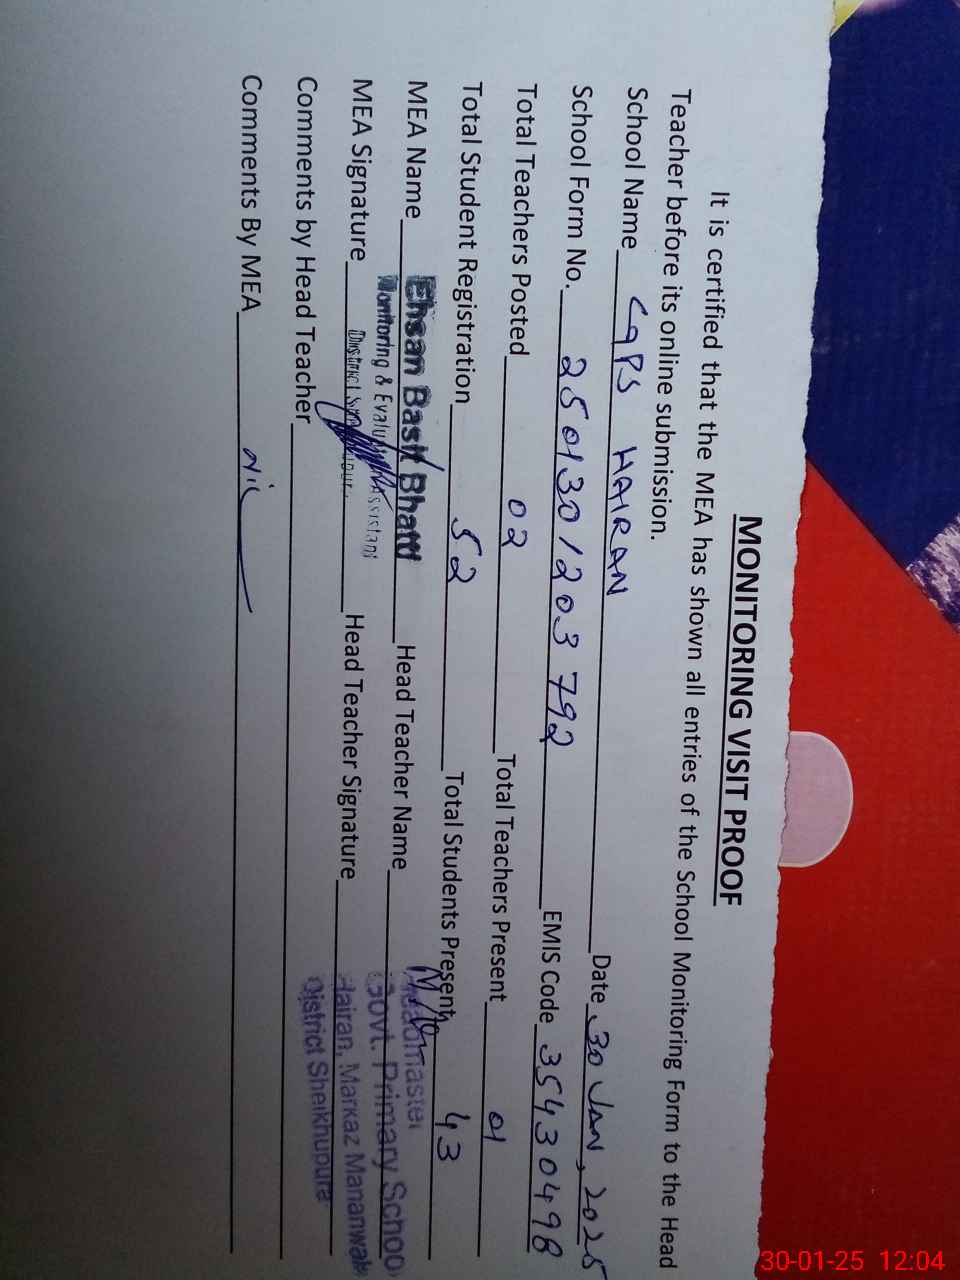 MONITORING VISIT PROOF
It is certified that the MEA has shown all entries of the School Monitoring Form to the Head
Teacher before its online submission.
School Name GPS HAIRAN Date 30 Jan, 2025
School Form No. 250130/203792 EMIS Code 35430498
Total Teachers Posted 02 Total Teachers Present 01
Total Student Registration 52 Total Students Present 43
MEA Name Ehsan Basit Bhatti Head Teacher Name Headmaster
Monitoring & Evaluation Assistant Govt. Primary School
MEA Signature Head Teacher Signature Hairan, Markaz Mananwala
District Sheikhupura
Comments by Head Teacher
Comments By MEA Nil
30-01-25 12:04